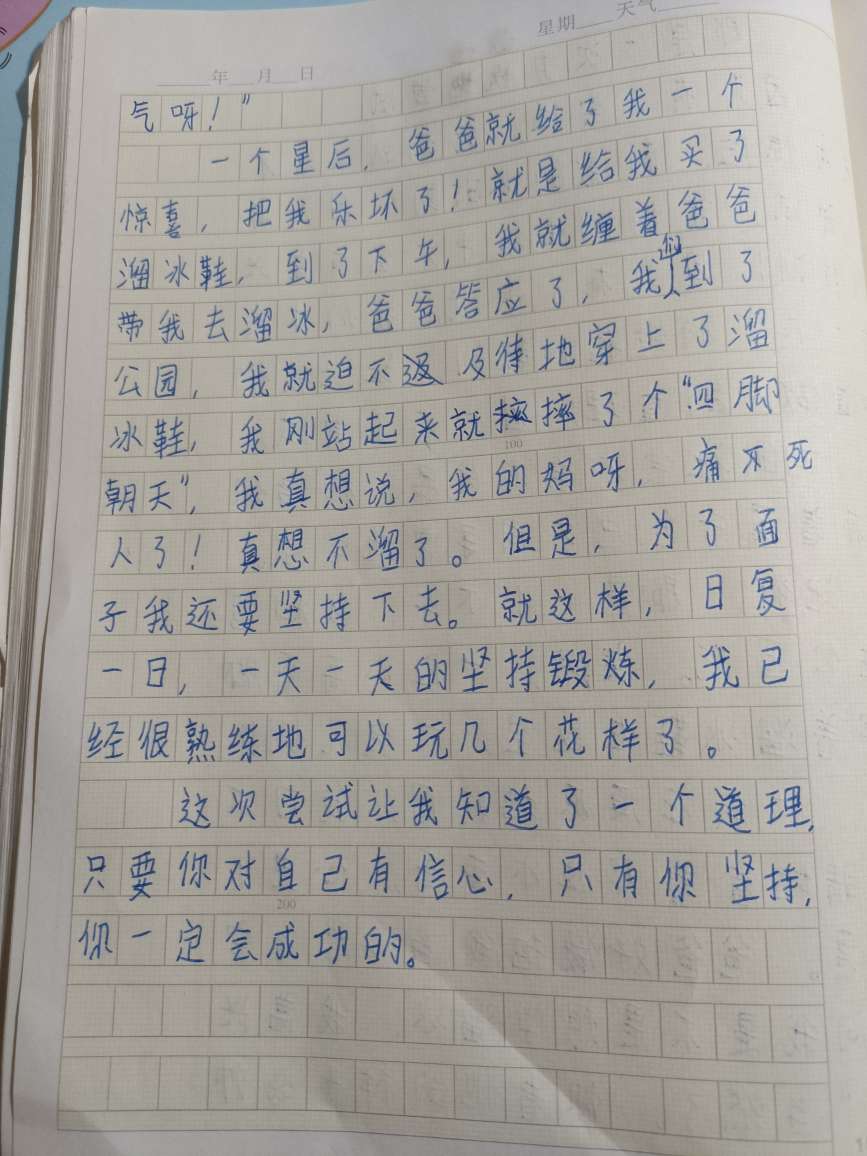 星期 天气
年 月 日
气呀！”
一个星后，爸爸就给了我一个
惊喜，把我乐坏了！就是给我买了
溜冰鞋，到了下午，我就缠着爸爸
带我去溜冰，爸爸答应了，我们到了
公园，我就迫不及待地穿上了溜
冰鞋，我刚站起来就摔了个“四脚
朝天”，我真想说，我的妈呀，痛不死
人了！真想不溜了。但是，为了面
子我还要坚持下去。就这样，日复
一日，一天一天的坚持锻炼，我已
经很熟练地可以玩几个花样了。
这次尝试让我知道了一个道理，
只要你对自己有信心，只有你坚持，
你一定会成功的。
100
200